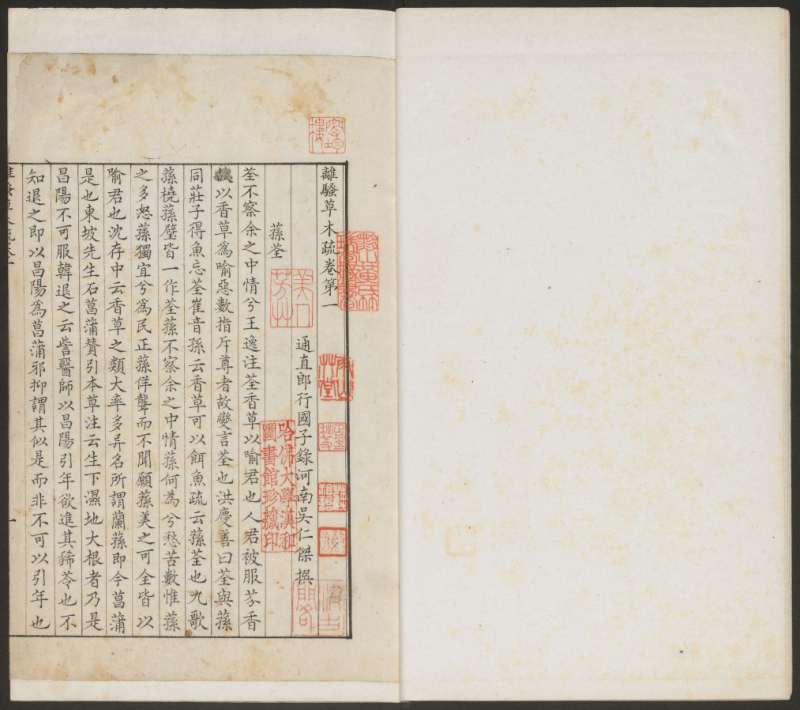 離騷草木疏卷第一
通直郎行國子錄河南吳仁傑撰
蓀荃
荃不察余之中情兮王逸注荃香草以喻君也人君被服芬香
以香草為喻惡數指斥尊者故變言荃也洪慶善曰荃與蓀
同莊子得魚忘荃崔音孫云香草可以餌魚疏云蓀荃也九歌
蓀橈蓀壁皆一作荃蓀不察余之中情蓀何為兮愁苦數惟蓀
之多怒蓀獨宜兮為民正蓀佯聾而不聞願蓀美之可全皆以
喻君也沈存中云香草之類大率多异名所謂蘭蓀即今菖蒲
是也東坡先生石菖蒲贊引本草注云生下濕地大根者乃是
昌陽不可服韓退之云訾醫師以昌陽引年欲進其豨苓也不
知退之即以昌陽為菖蒲邪抑謂其似是而非不可以引年也
一
哈佛大學漢和
圖書館珍藏印